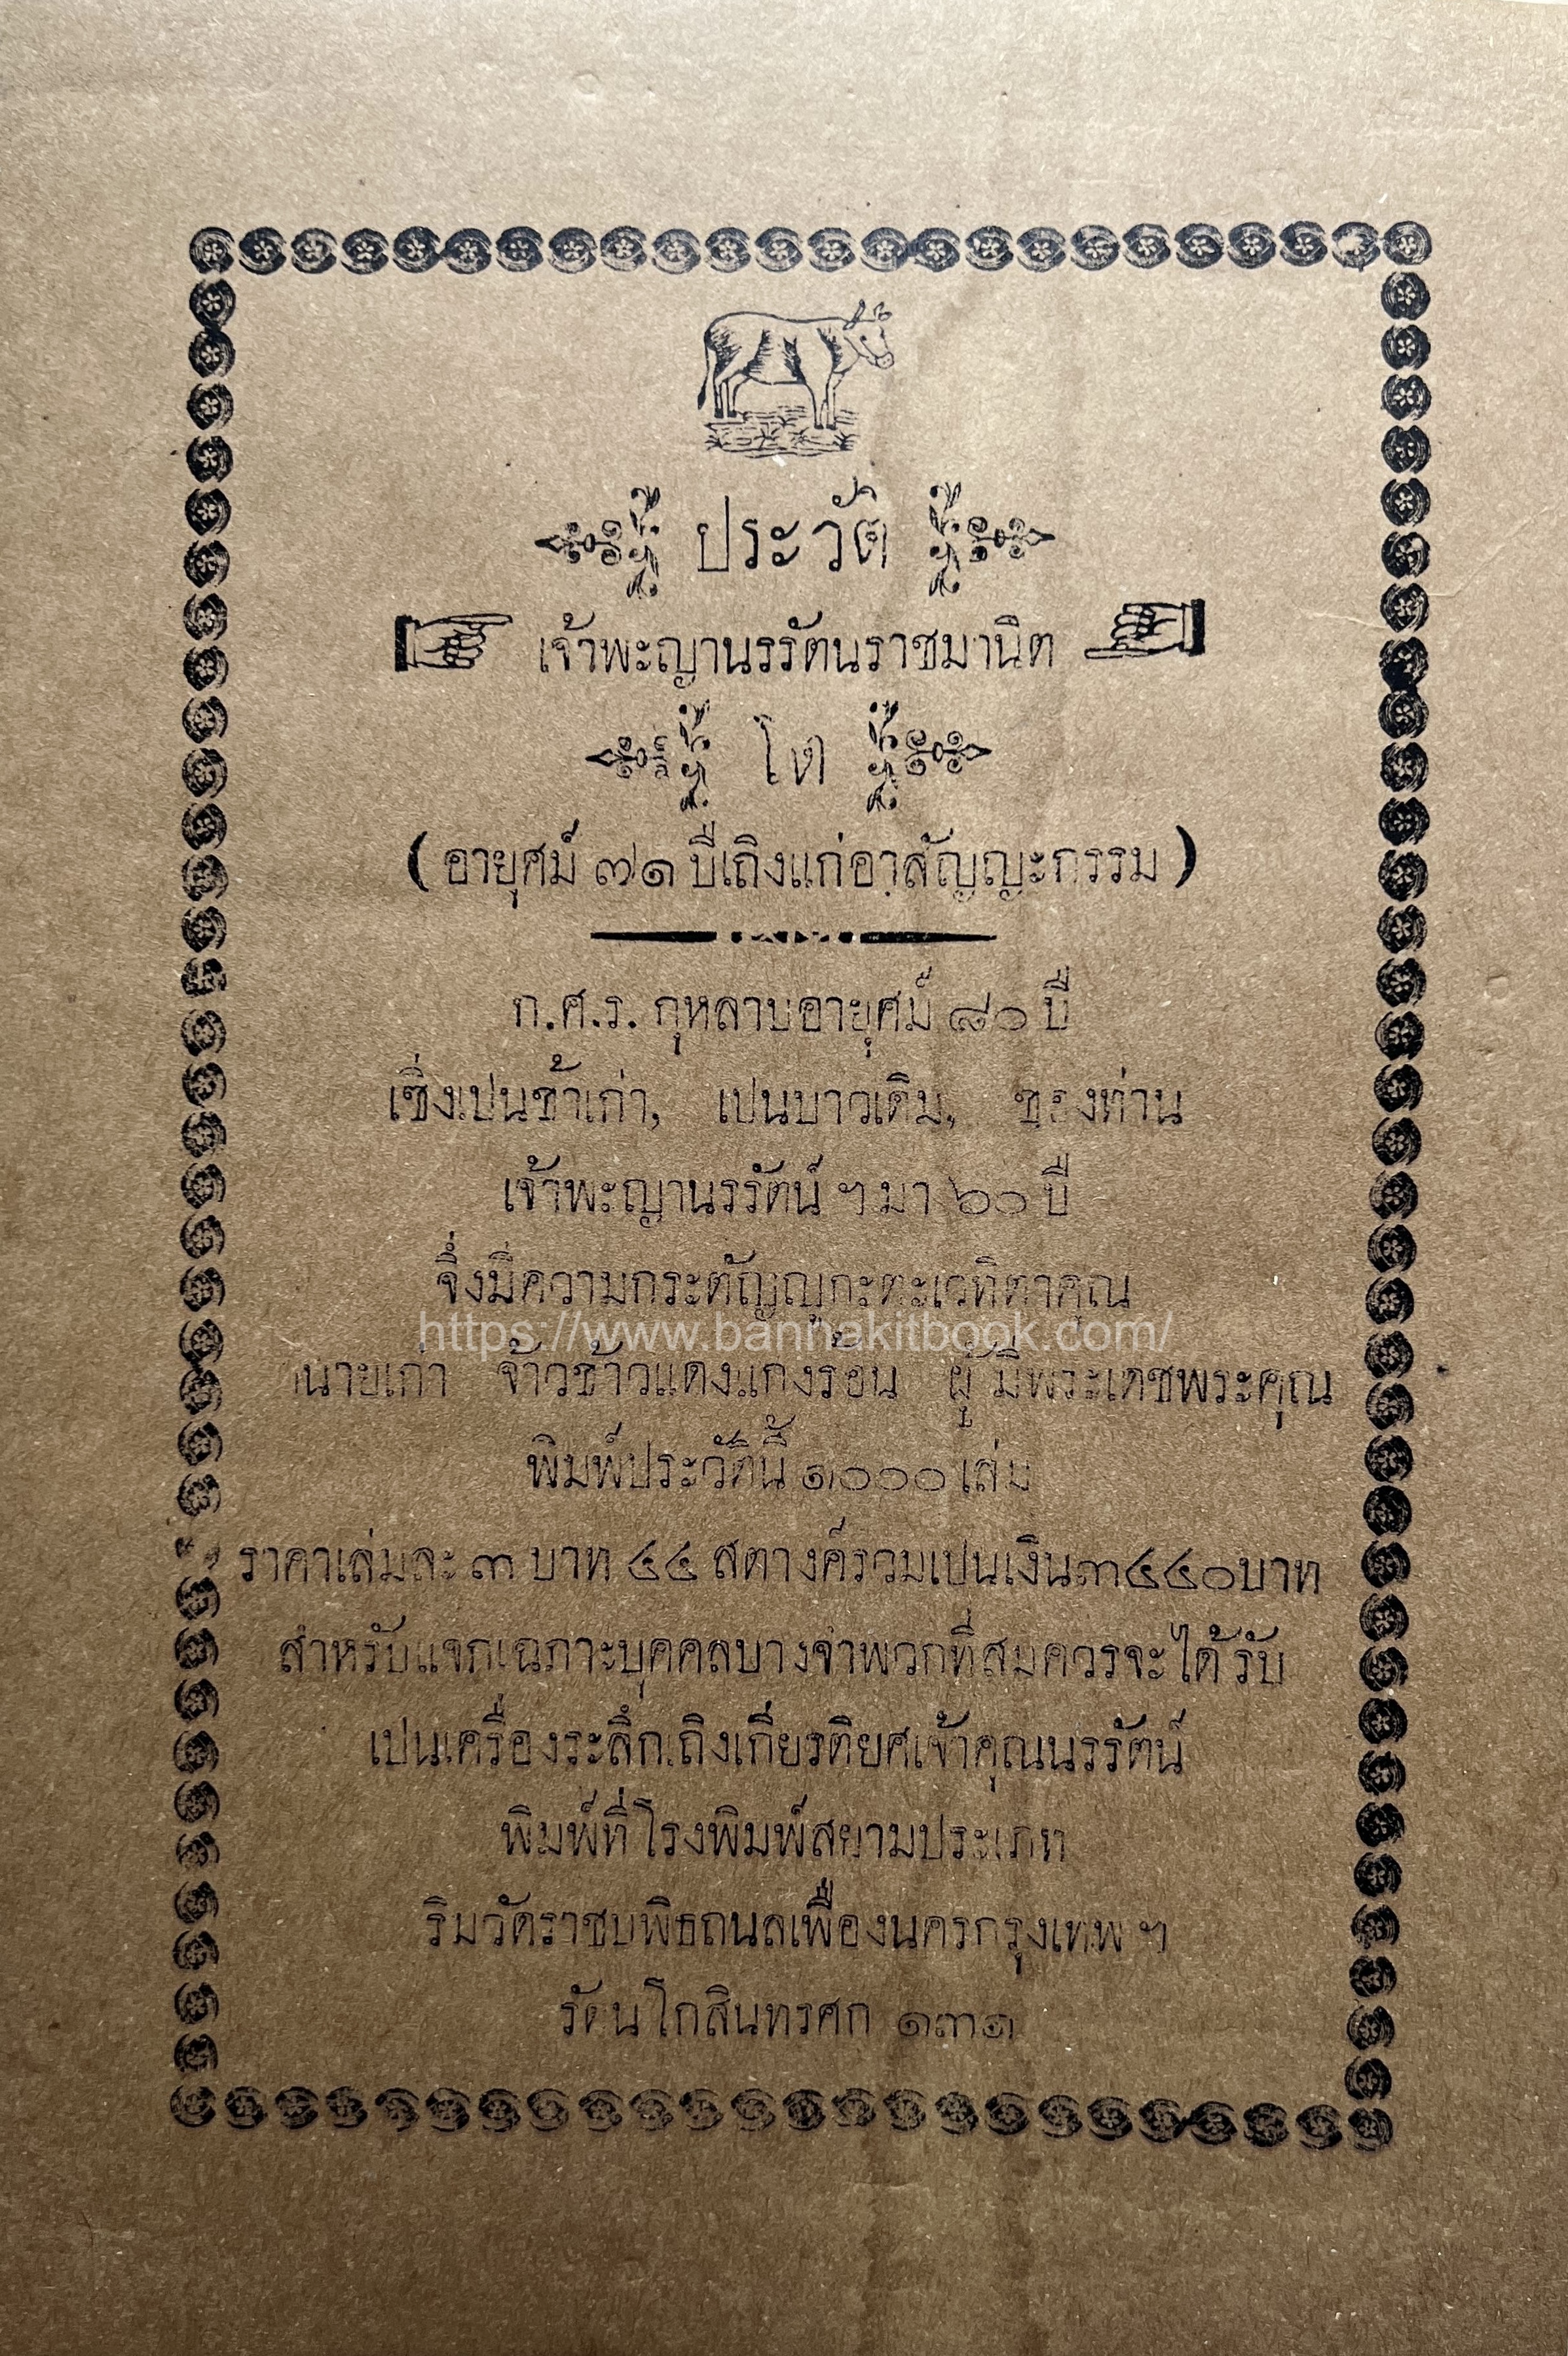 ประวัติ
เจ้าพะญานรรัตนราชมานิต
โต
( อายุศม์ ๗๑ ปีเถิงแก่อาสัญญะกรรม )
ก.ศ.ร. กุหลาบอายุศม์ ๘๐ ปี
เซิ่งเปนข้าเก่า, เปนบาวเดิม, ของท่าน
เจ้าพะญานรรัตน์ ฯ มา ๖๐ ปี
จิ่งมีความกระตัญญุกะตะเวทิตาคุณ
https://www.bannakitbook.com/
นายเก่า จ้าวข้าวแดงแกงร้อน ผู้มีพระเดชพระคุณ
พิมพ์ประวัตินี้ ๑,๐๐๐ เล่ม
ราคาเล่มละ ๓ บาท ๔๔ สตางค์รวมเปนเงิน๓๔๔๐บาท
สำหรับแจกเฉภาะบุคคลบางจำพวกที่สมควรจะได้รับ
เปนเครื่องระลึกเถิงเกียรติยศเจ้าคุณนรรัตน์
พิมพ์ที่โรงพิมพ์สยามประเภท
ริมวัดราชบพิธถนลเฟื่องนครกรุงเทพ ฯ
รัตนโกสินทรศก ๑๓๑